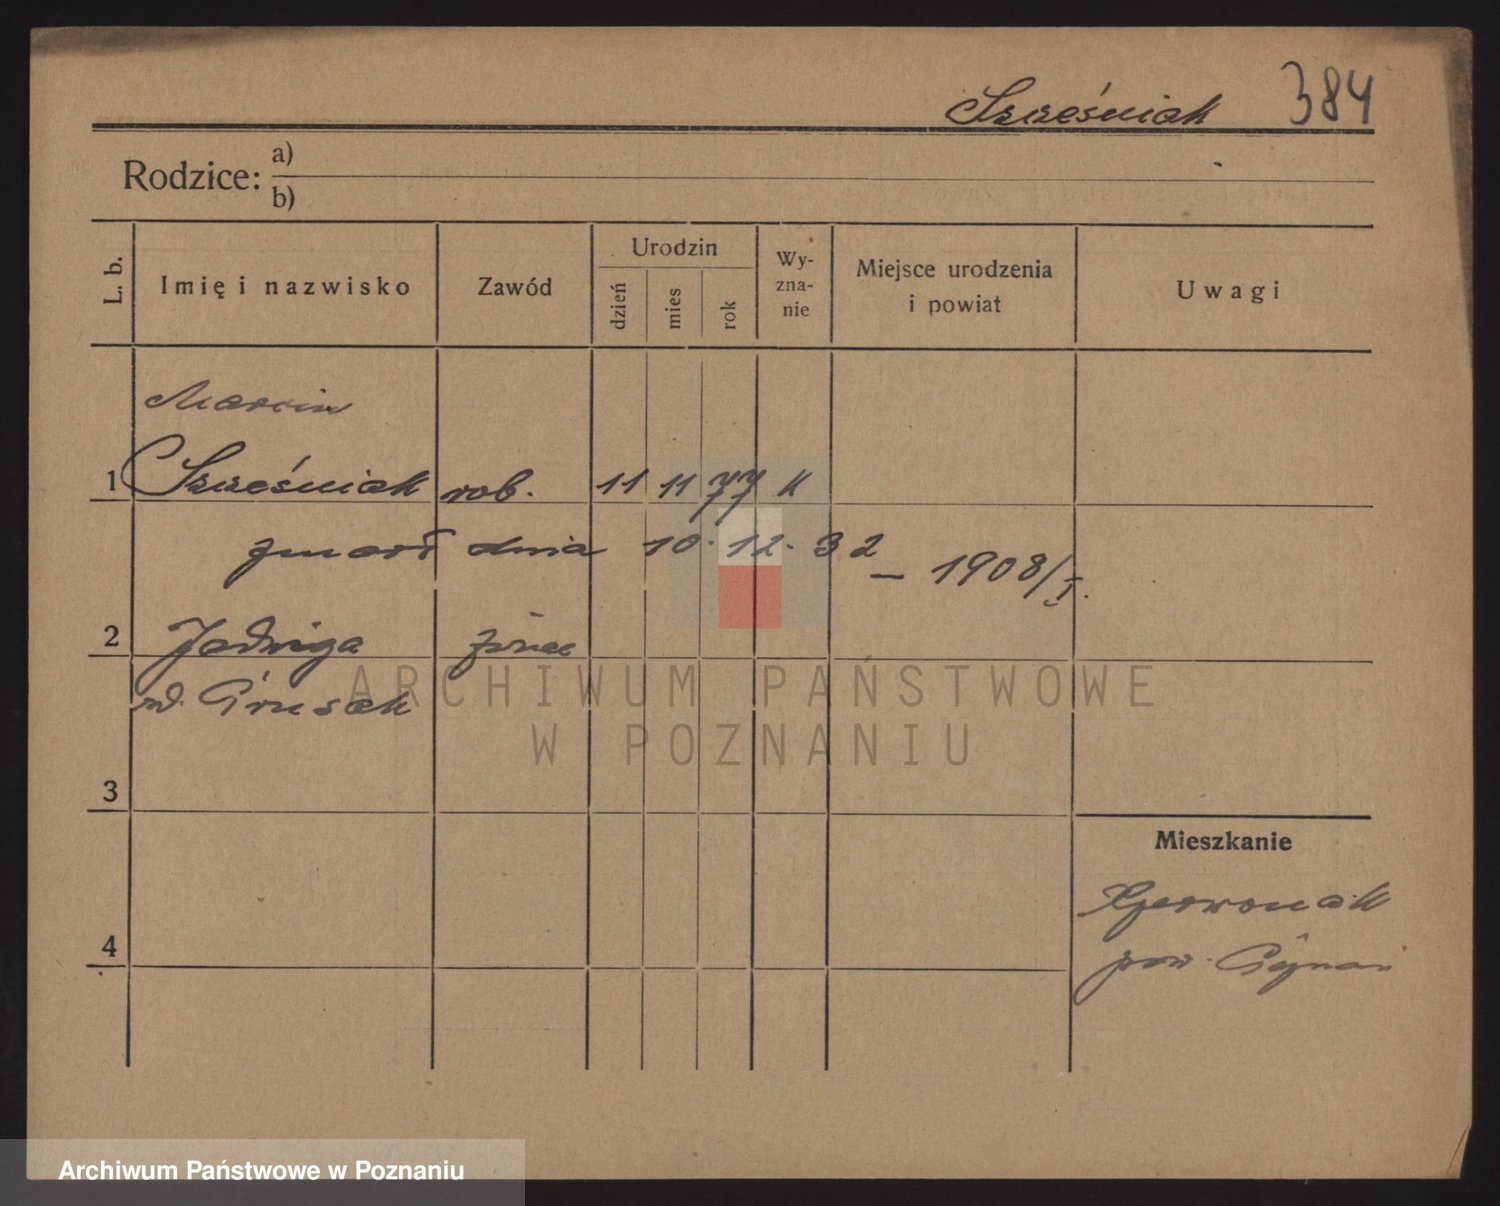 Szcześniak 384
Rodzice: a)
b)
L. b. Imię i nazwisko Zawód Urodzin dzień mies rok Wy-zna-nie Miejsce urodzenia i powiat Uwagi
Marcin
1 Szcześniak rob. 11 11 77 k
zmarł dnia 10. 12. 32 – 1908/I.
2 Jadwiga żona
ARCHIWUM PAŃSTWOWE
W POZNANIU
3
Mieszkanie
4
pow.
Archiwum Państwowe w Poznaniu